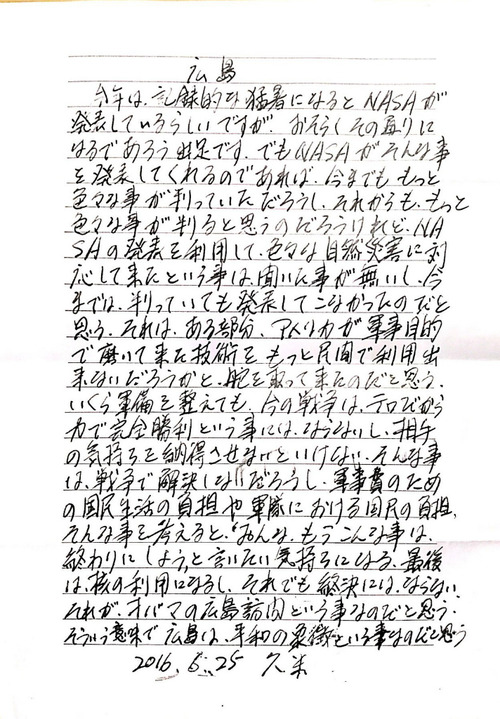 広島
今年は、記録的な猛暑になるとNASAが
発表しているらしいですが、おそらくその通りに
なるであろう出足です。でもNASAがそんな事
を発表してくれるのであれば、今までももっと
色々な事が判っていただろうし、それからも、もっと
色々な事が判ると思うのだろうけれど、NA
SAの発表を利用して、色々な自然災害に対
応して来たという事は、聞いた事が無いし、今
までは、判っていても発表してこなかったのだと
思う。それは、ある部分、アメリカが軍事目的
で磨いて来た技術をもっと民間で利用出
来ないだろうかと、舵を取って来たのだと思う。
いくら軍備を整えても、今の戦争は、テロだから
力で完全勝利という事には、ならないし、相手
の気持ちを納得させないといけない。そんな事
は、戦争で解決しないだろうし、軍事費のため
の国民生活の負担や軍隊における国民の負担、
そんな事を考えると、“みんな、もうこんな事は、
終わりにしよう„と言いたい気持ちになる。最後
は、核の利用になるし、それでも終決には、ならない。
それが、オバマの広島訪問という事なのだと思う。
そういう意味で広島は、平和の象徴という事なのだと思う
2016.5.25 久米